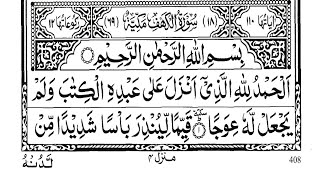 اٰیَاتُهَا ۱۱۰ (۱۸) سُوْرَةُ الْكَهْفِ مَكِّيَّةٌ (٦٩) رُكُوْعَاتُهَا ۱۲
بِسْمِ اللّٰهِ الرَّحْمٰنِ الرَّحِيْمِ
اَلْحَمْدُ لِلّٰهِ الَّذِيْٓ اَنْزَلَ عَلٰى عَبْدِهِ الْكِتٰبَ وَلَمْ
يَجْعَلْ لَّهٗ عِوَجًا ۜ قَيِّمًا لِّيُنْذِرَ بَاْسًا شَدِيْدًا مِّنْ
لَّدُنْهُ
منزل ۴
408